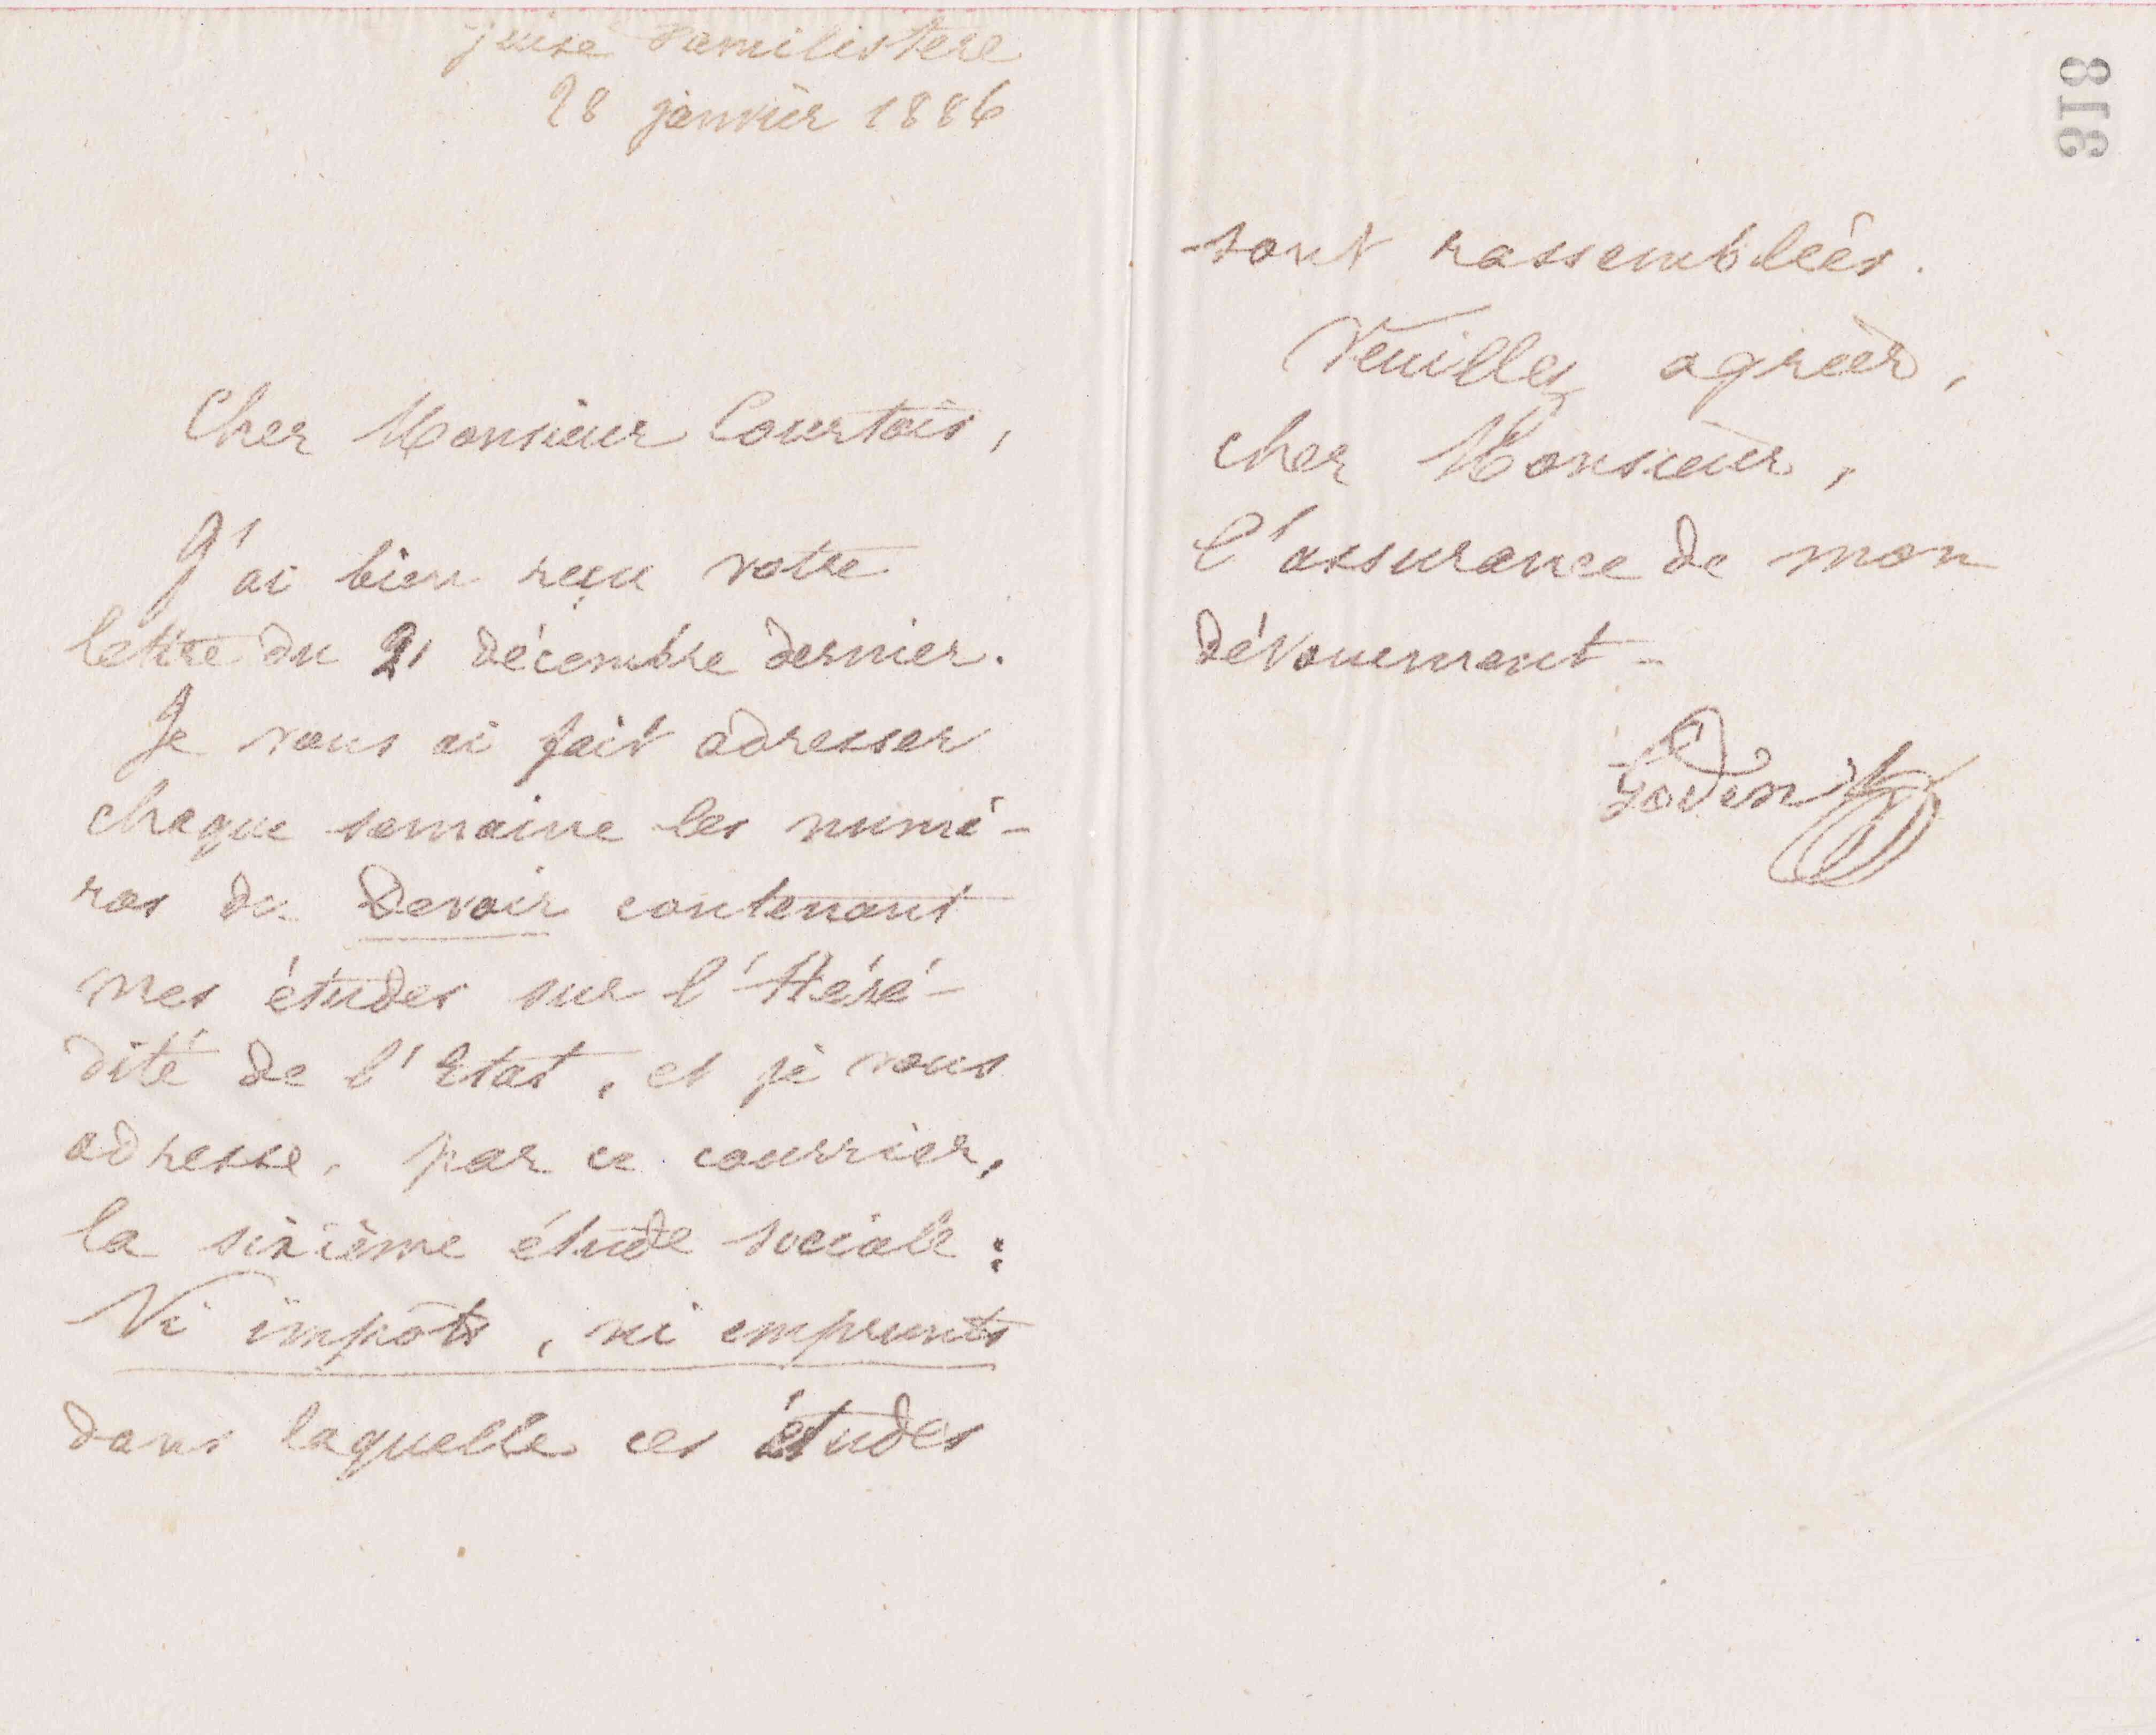 Guise Familistère
28 janvier 1886
Cher Monsieur Courtois,
J'ai bien reçu votre
lettre du 21 décembre dernier.
Je vous ai fait adresser
chaque semaine les numé-
ros du Devoir contenant
mes études sur l'Héré-
dité de l'Etat, et je vous
adresse, par ce courrier,
la sixième étude sociale :
Ni impôts, ni emprunts
dans laquelle ces études
318
sont rassemblées.
Veuillez agréer,
cher Monsieur,
l'assurance de mon
dévouement.
Godin